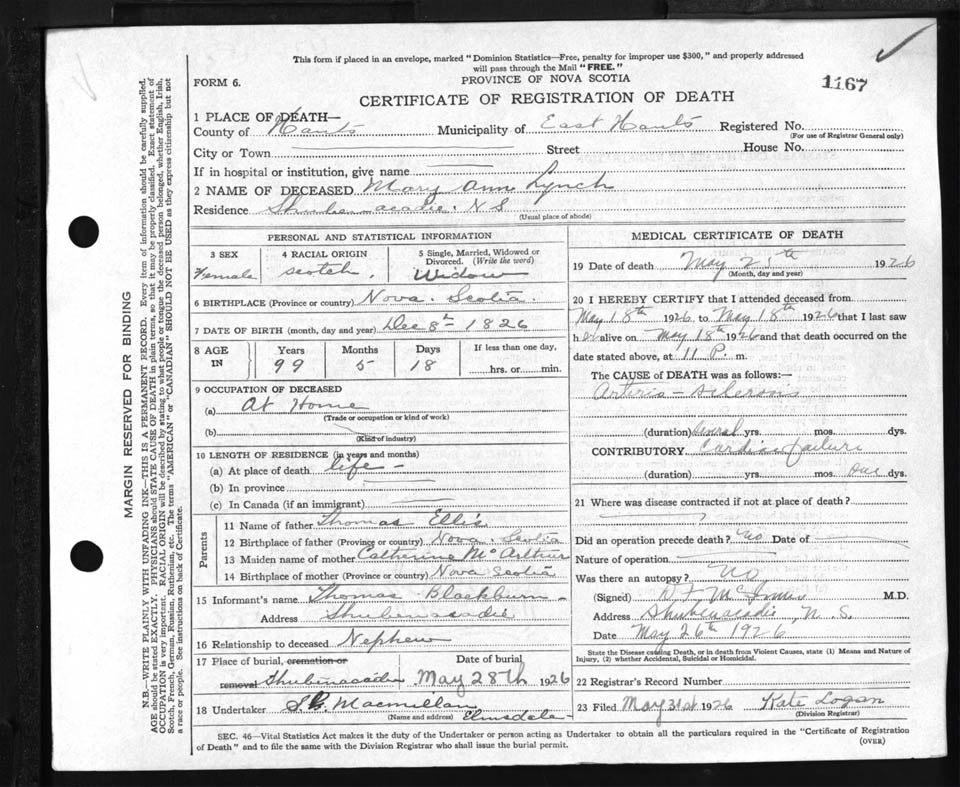 This form if placed in an envelope, marked "Dominion Statistics—Free, penalty for improper use $300," and properly addressed
will pass through the Mail "FREE."
FORM 6.
PROVINCE OF NOVA SCOTIA
1167
CERTIFICATE OF REGISTRATION OF DEATH
1 PLACE OF DEATH—
County of Hants Municipality of East Hants Registered No.
(For use of Registrar General only)
City or Town Street House No.
If in hospital or institution, give name
2 NAME OF DECEASED Mary Ann Lynch
Residence Shubenacadie. N S
(Usual place of abode)
PERSONAL AND STATISTICAL INFORMATION
3 SEX 4 RACIAL ORIGIN 5 Single, Married, Widowed or
Divorced. (Write the word)
Female Scotch. Widow
6 BIRTHPLACE (Province or country) Nova. Scotia.
7 DATE OF BIRTH (month, day and year) Dec 8th 1826
8 AGE Years Months Days If less than one day,
IN 99 5 18 hrs. or min.
9 OCCUPATION OF DECEASED
(a) At Home
(Trade or occupation or kind of work)
(b)
(Kind of industry)
10 LENGTH OF RESIDENCE (in years and months)
(a) At place of death life –
(b) In province
(c) In Canada (if an immigrant)
Parents
11 Name of father Thomas Ellis
12 Birthplace of father (Province or country) Nova. Scotia
13 Maiden name of mother Catherine McArthur
14 Birthplace of mother (Province or country) Nova Scotia
15 Informant's name Thomas Blackburn –
Address Shubenacadie
16 Relationship to deceased Nephew
17 Place of burial, cremation or Date of burial
removal Shubenacadie May 28th 1926
18 Undertaker S. B. Macmillan
(Name and address) Elmsdale
MEDICAL CERTIFICATE OF DEATH
19 Date of death May 1926
(Month, day and year)
20 I HEREBY CERTIFY that I attended deceased from
May 18th 1926 to May 18th 1926 that I last saw
her alive on May 18th 1926 and that death occurred on the
date stated above, at 11 P. m.
The CAUSE of DEATH was as follows:—
Arterio – sclerosis
(duration) Several yrs. mos. dys.
CONTRIBUTORY Cardiac failure
(duration) yrs. mos. one dys.
21 Where was disease contracted if not at place of death?
Did an operation precede death? No Date of
Nature of operation
Was there an autopsy? No
(Signed) M.D.
Address Shubenacadie, N. S.
Date May 26th 1926
State the Disease causing Death, or in death from Violent Causes, state (1) Means and Nature of
Injury, (2) whether Accidental, Suicidal or Homicidal.
22 Registrar's Record Number
23 Filed May 31st 1926 Kate Logan
(Division Registrar)
SEC. 46—Vital Statistics Act makes it the duty of the Undertaker or person acting as Undertaker to obtain all the particulars required in the "Certificate of Registration
of Death" and to file the same with the Division Registrar who shall issue the burial permit.
(OVER)
MARGIN RESERVED FOR BINDING
N.B.—WRITE PLAINLY, WITH UNFADING INK—THIS IS A PERMANENT RECORD. Every item of information should be carefully supplied.
AGE should be stated EXACTLY. PHYSICIANS should STATE CAUSE OF DEATH in plain terms, so that it may be properly classified. Exact statement of
OCCUPATION is very important. RACIAL ORIGIN will be described by stating to what people or tongue the deceased person belonged, whether English, Irish,
Scotch, French, German, Russian, Ruthenian, etc. The terms "AMERICAN" or "CANADIAN" SHOULD NOT BE USED as they express citizenship but not
a race or people. See instructions on back of Certificate.